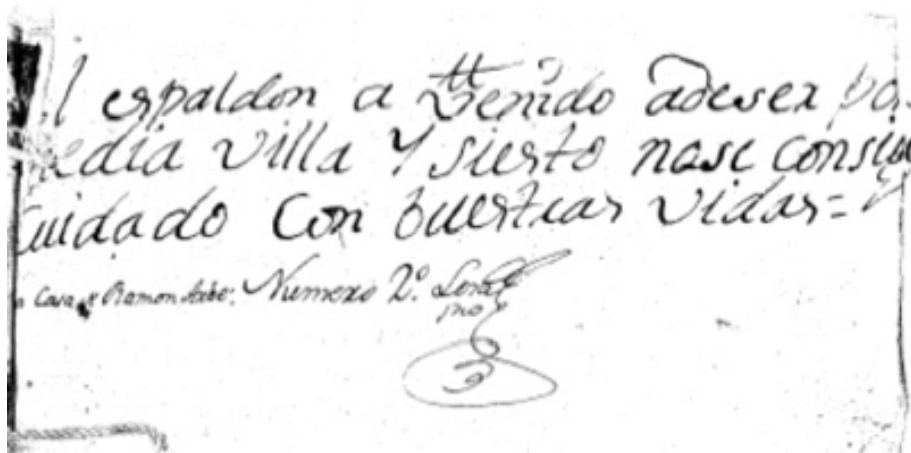 El espaldon a Benido adeser po
media villa Y sierto nase consig
Cuidado Con buestras vidas=
a Casa Ramon Numero 2º.